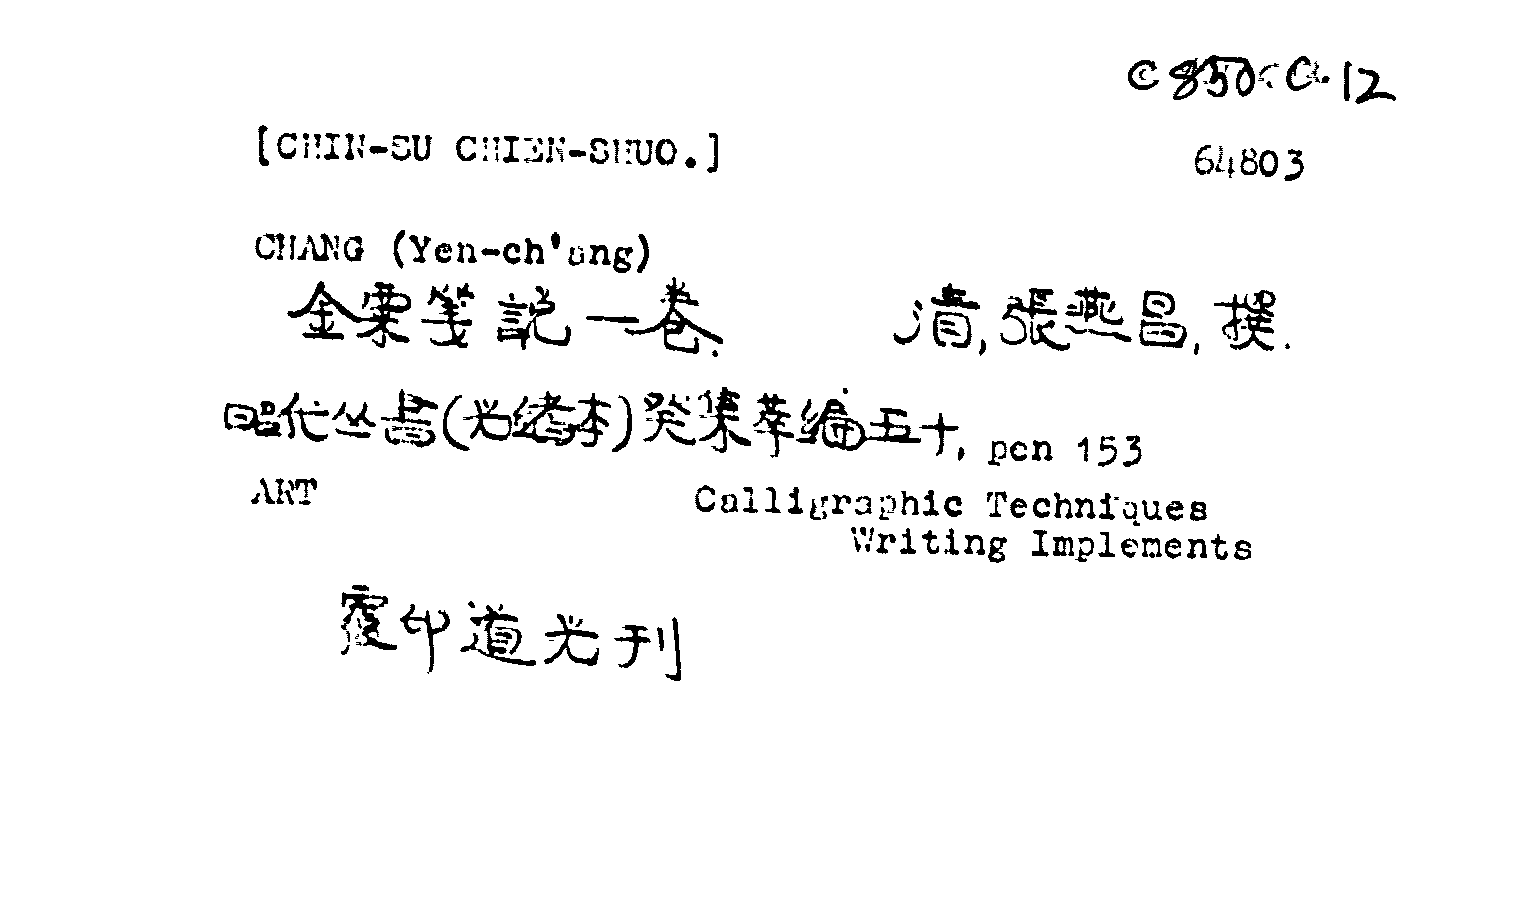 64803
[CHIN-SU CHIEN-SHUO.]
CHANG (Yen-ch'ang)
金粟笺説一卷. 清,張燕昌,撰.
昭代丛書(光緒本)癸集萃編五十, pen 153
ART Calligraphic Techniques
Writing Implements
覆印道光刊